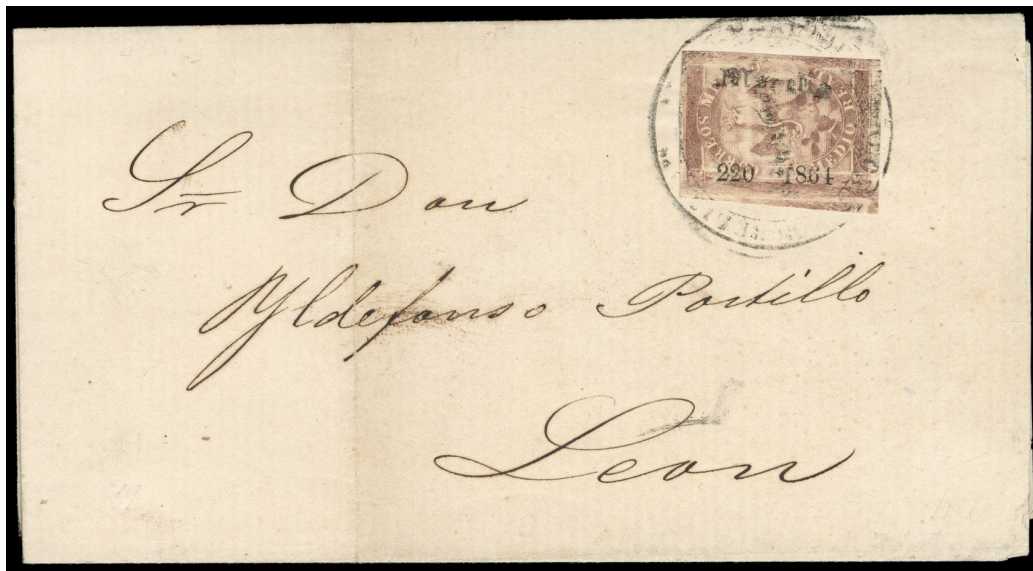 220 1864
Sr Don
Yldefonso Portillo
Leon